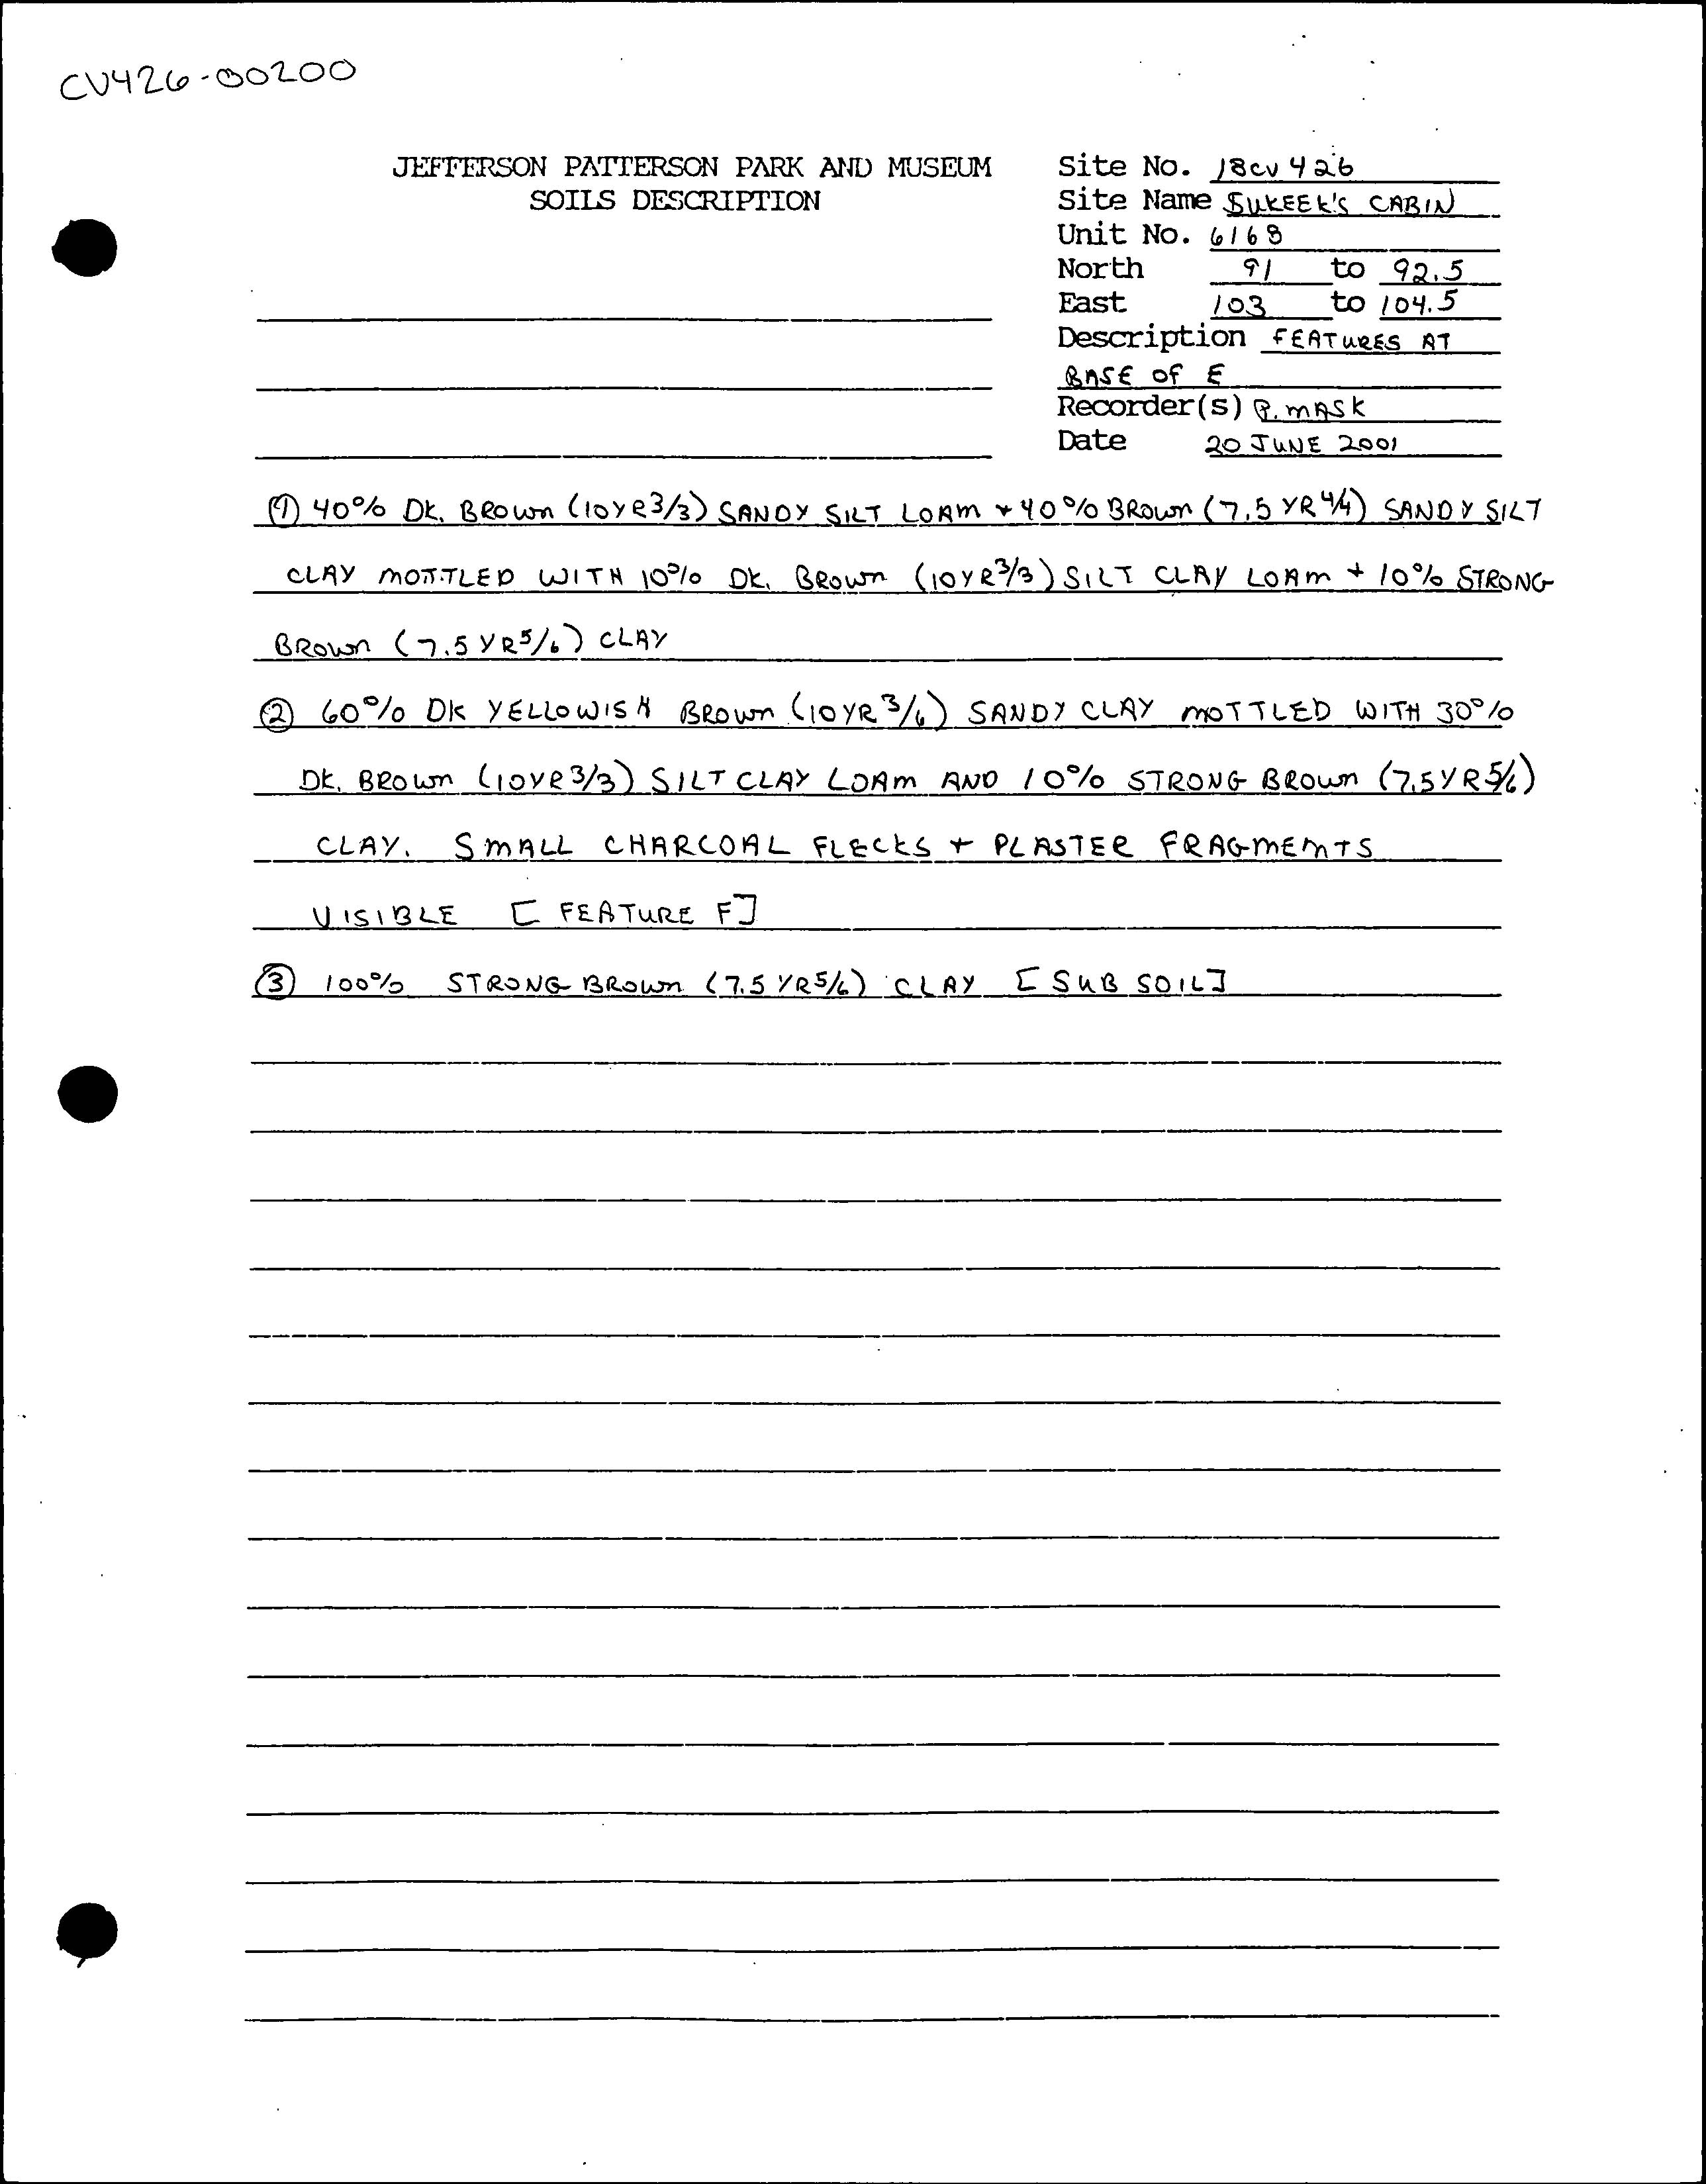 CV426-00200
JEFFERSON PATTERSON PARK AND MUSEUM
SOILS DESCRIPTION
Site No. 18CV426
Site Name SUKEEK'S CABIN
Unit No. 6168
North 91 to 92.5
East 103 to 104.5
Description FEATURES AT
BASE OF E
Recorder(s) P. MASK
Date 20 JUNE 2001
① 40% DK. BROWN (10YR3/3) SANDY SILT LOAM + 40% BROWN (7.5 YR 4/4) SANDY SILT
CLAY MOTTLED WITH 10% DK. BROWN (10YR3/3) SILT CLAY LOAM + 10% STRONG
BROWN (7.5 YR5/6) CLAY
② 60% DK YELLOWISH BROWN (10YR 3/6) SANDY CLAY MOTTLED WITH 30%
DK. BROWN (10YR3/3) SILT CLAY LOAM AND 10% STRONG BROWN (7.5YR5/6)
CLAY. SMALL CHARCOAL FLECKS + PLASTER FRAGMENTS
VISIBLE [FEATURE F]
③ 100% STRONG BROWN (7.5 YR5/6) CLAY [SUB SOIL]